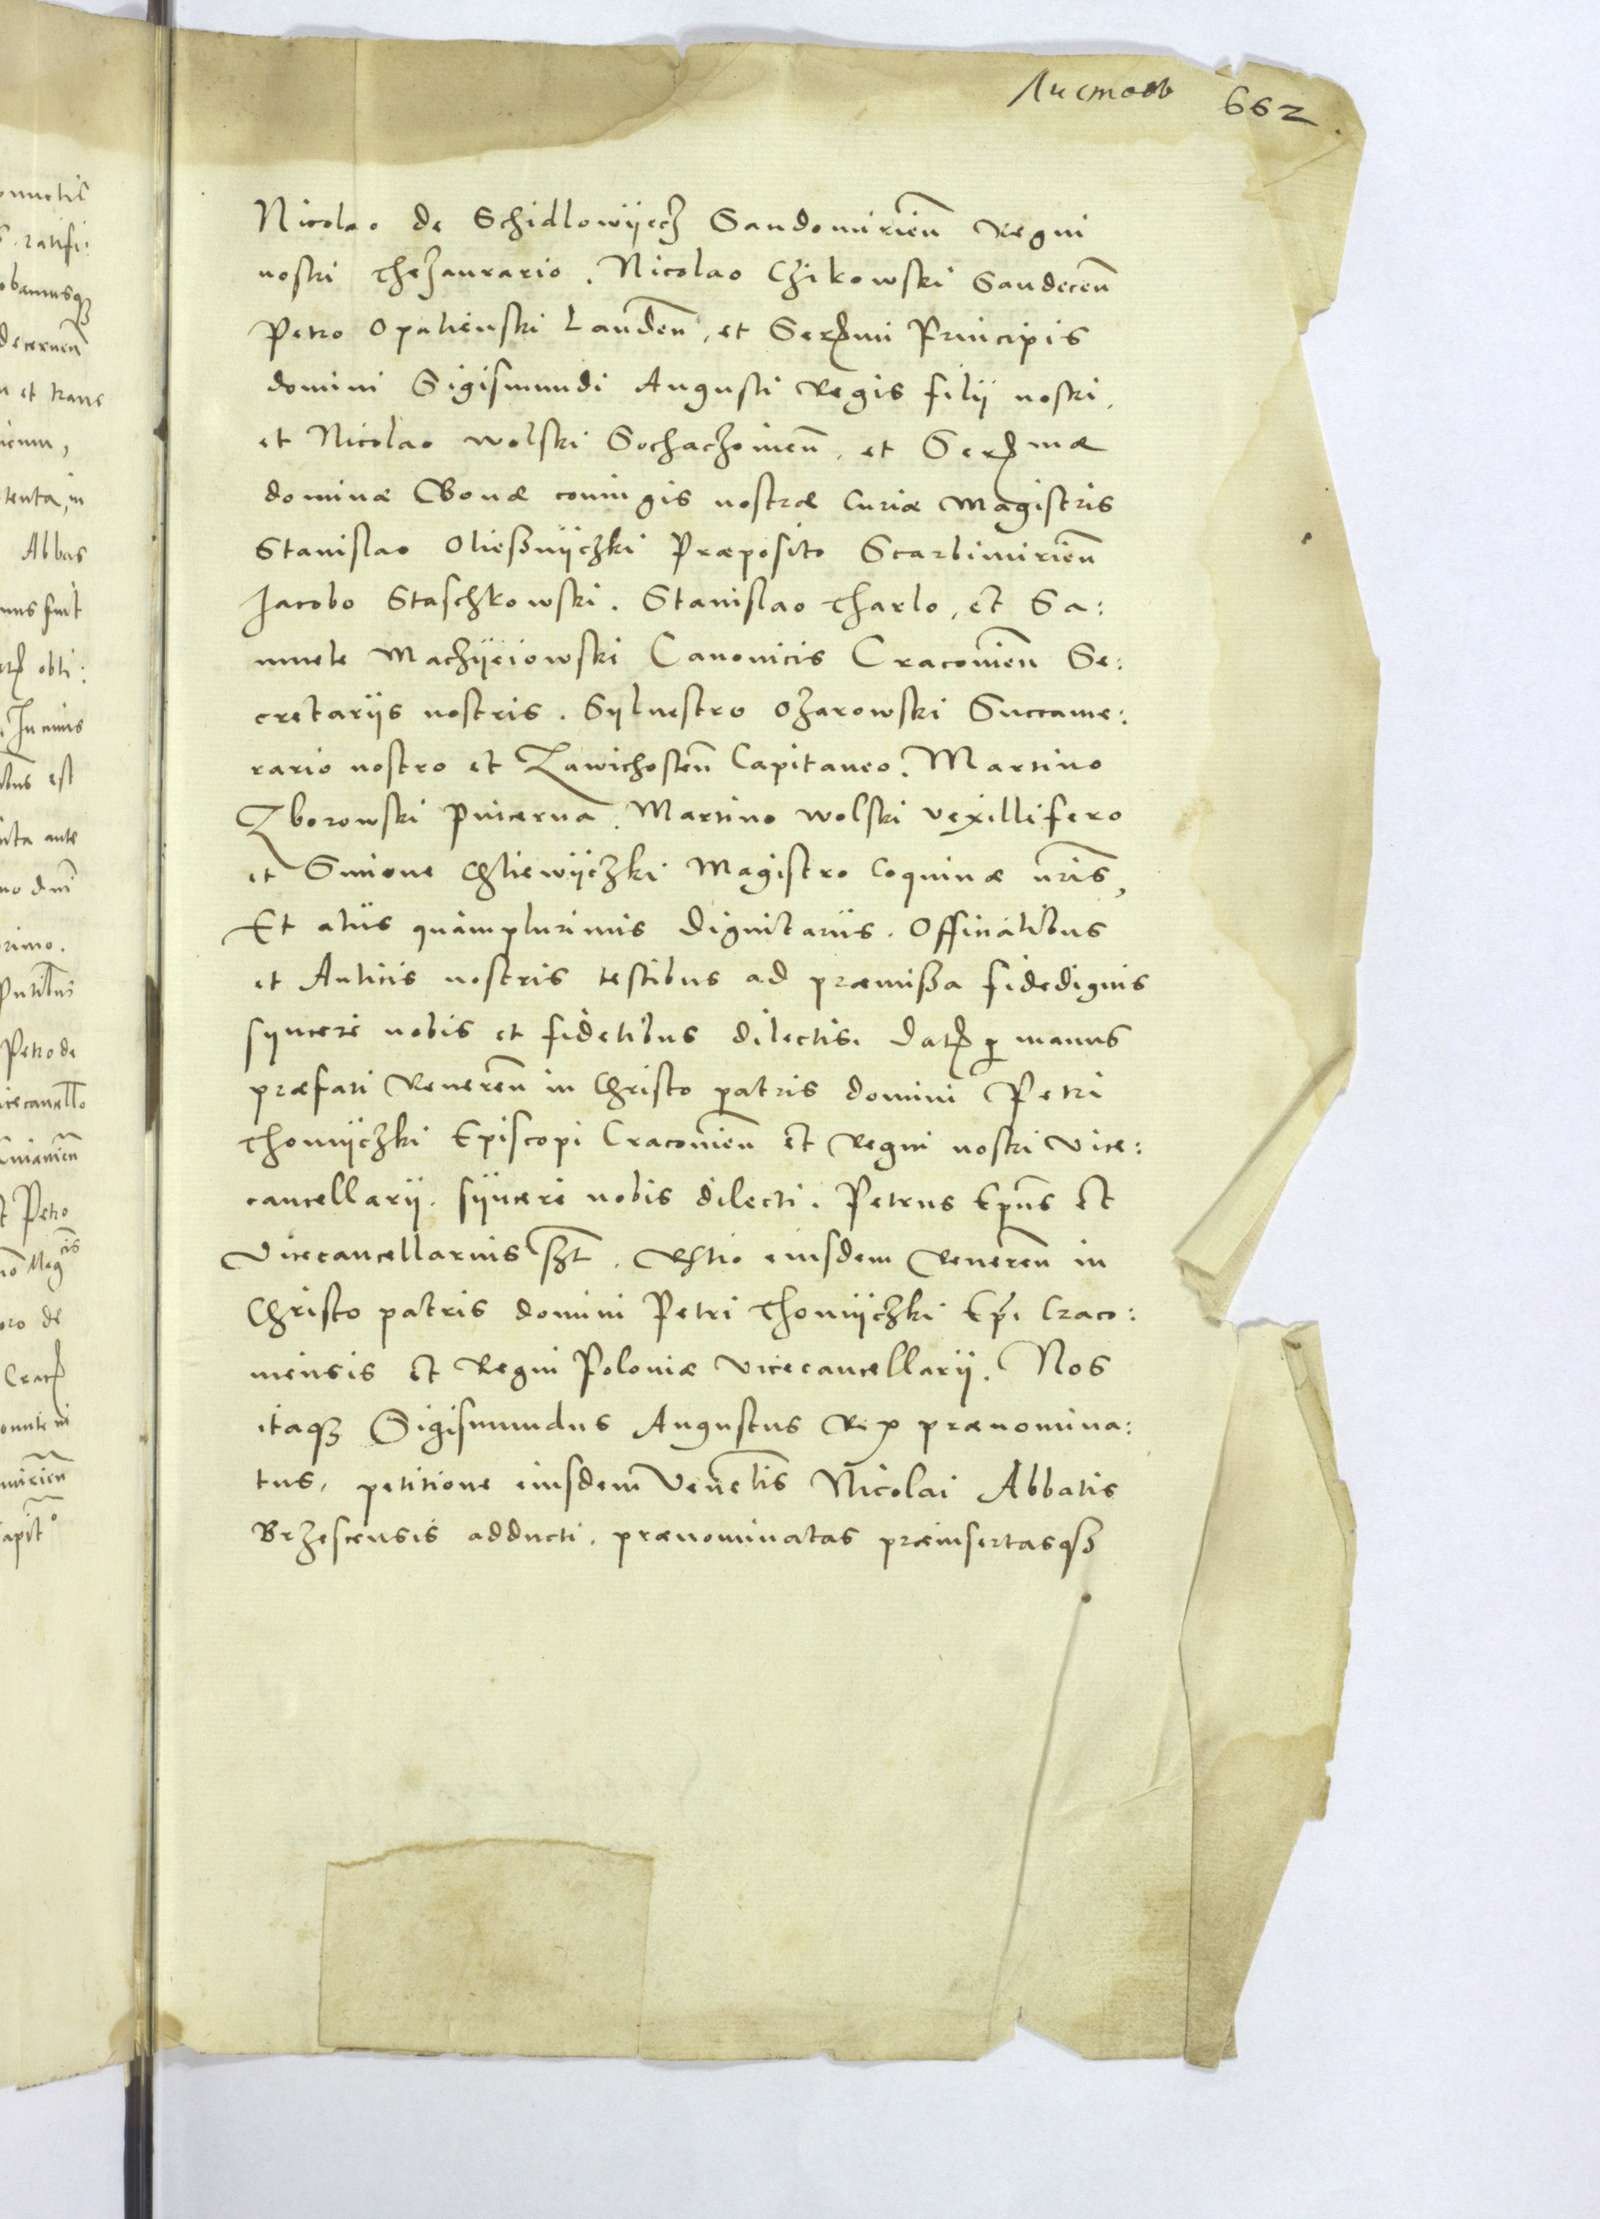 Листовъ 662.
Nicolao de Schidlowÿecz Sandomirien̄ Regni
nostri Thezaurario. Nicolao Czikowski Sandecen̄
Petro Opalienski Landen̄, et Sermi Principis
domini Sigismundi Augusti Regis filÿ nostri,
et Nicolao wolski Sochaczouien̄, et Sermæ
dominæ Bonæ coniugis nostræ Curiæ Magistris
Stanislao Oliesnÿczki Præposito Scarbimirien̄
Jacobo Staschkowski. Stanislao Tharlo, et Sa:
muele Maczÿeiowski Canonicis Cracouien̄ Se:
cretarÿs nostris. Sÿluestro Ozarowski Succame:
rario nostro et Zawichosten̄ Capitaneo. Martino
Zborowski Pincerna. Martino wolski vexillifero
et Simone Chliewÿczki Magistro Coquinæ nr̄is,
Et aliis quamplurimis Dignitariis. Officialibus
et Aulicis nostris testibus ad præmissa fidedignis
sÿncere nobis et fidelibus dilectis. Dat p manus
præfati Reueren̄ in Christo patris domini Petri
Thomÿczki Episcopi Cracouien̄ et Regni nostri vice:
cancellarÿ. sÿncere nobis dilecti. Petrus Ep̄us et
Vicecancellarius sszt. Rltio eiusdem Reueren̄ in
Christo patris domini Petri Thomÿczki Ep̄i Craco:
uiensis et Regni Poloniæ vicecancellarÿ. Nos
itaqꝫ Sigismundus Augustus Rex prænomina:
tus, petitione eiusdem Ven̄elis Nicolai Abbatis
Brzescensis adducti. prænominatas præinsertasqꝫ
Abbas
Petro de
et Petro